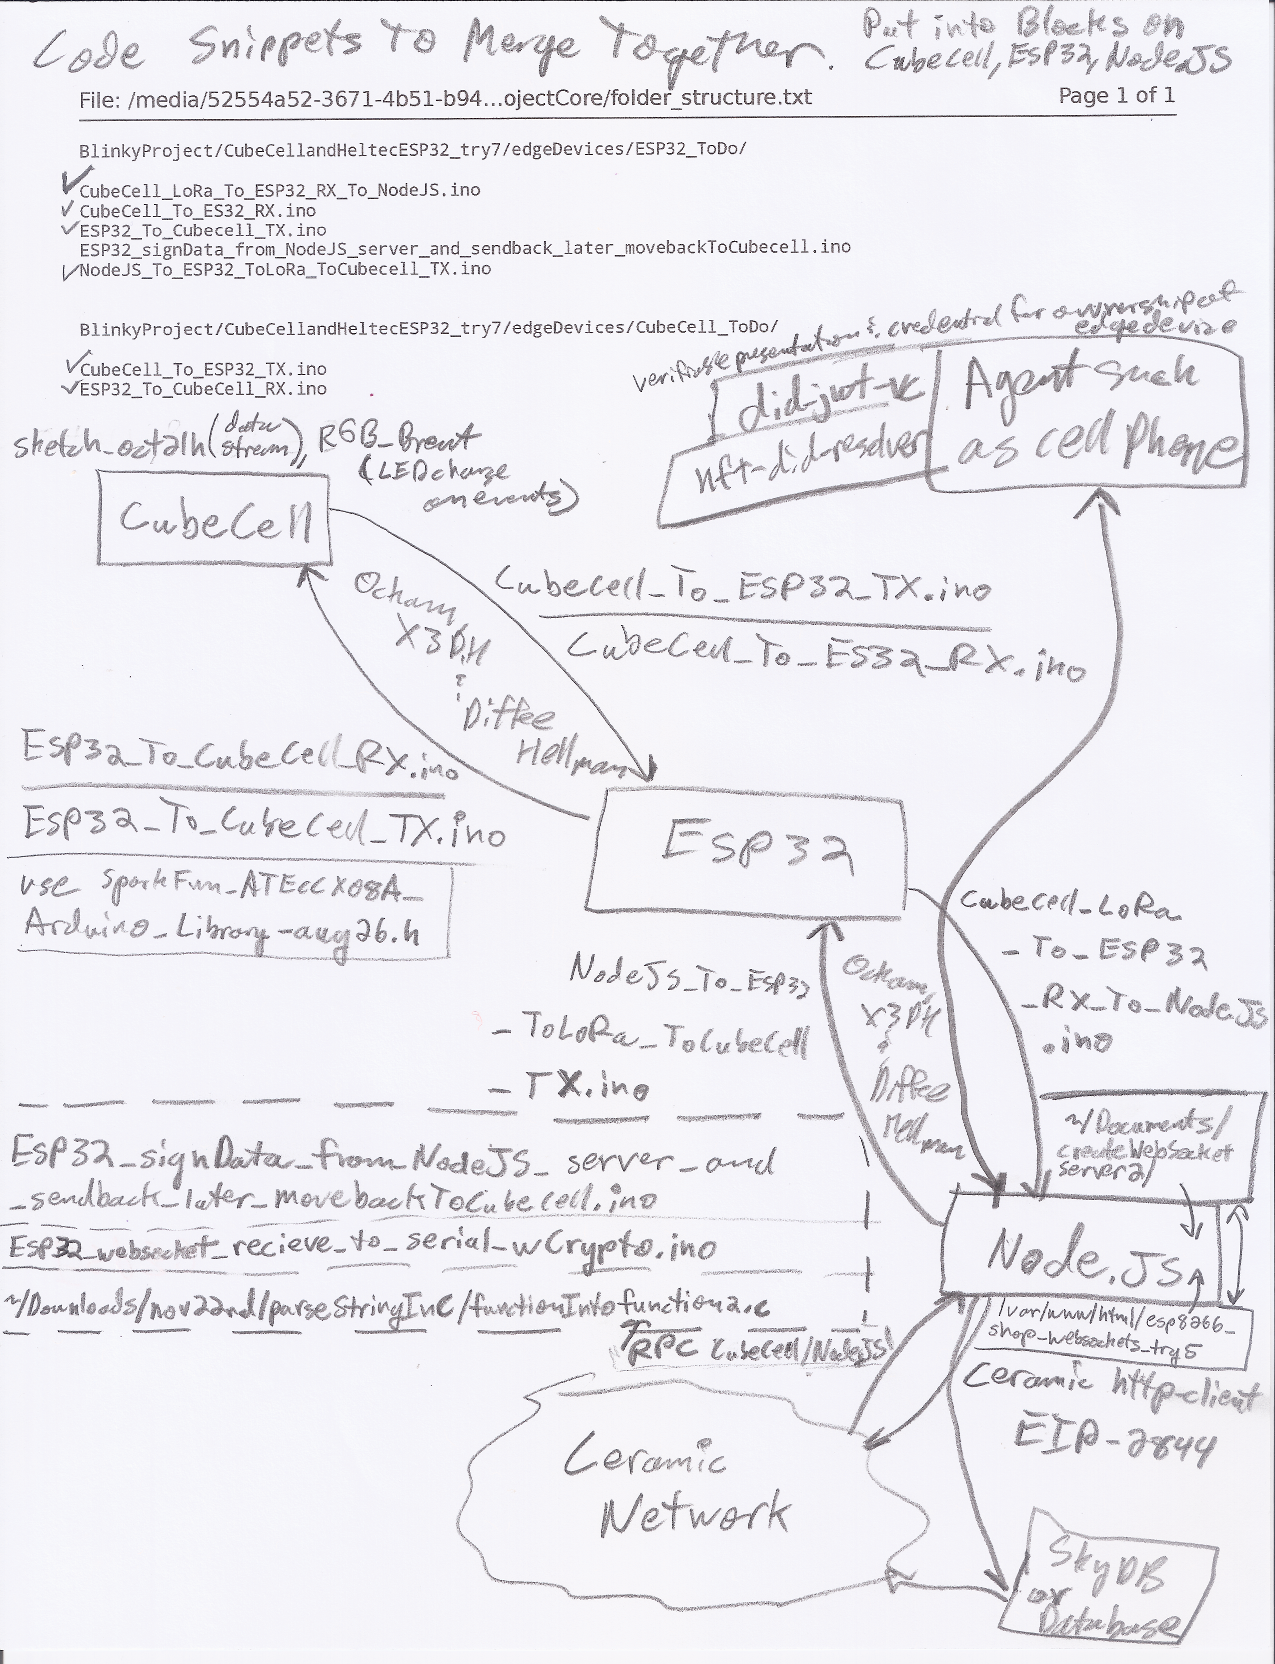 Code Snippets To Merge Together.
Put into Blocks on
Cubecell, ESP32, Node.JS
File: /media/52554a52-3671-4b51-b94...ojectCore/folder_structure.txt
Page 1 of 1
BlinkyProject/CubeCellandHeltecESP32_try7/edgeDevices/ESP32_ToDo/
CubeCell_LoRa_To_ESP32_RX_To_NodeJS.ino
CubeCell_To_ES32_RX.ino
ESP32_To_Cubecell_TX.ino
ESP32_signData_from_NodeJS_server_and_sendback_later_movebackToCubecell.ino
NodeJS_To_ESP32_ToLoRa_ToCubecell_TX.ino
BlinkyProject/CubeCellandHeltecESP32_try7/edgeDevices/CubeCell_ToDo/
CubeCell_To_ESP32_TX.ino
ESP32_To_CubeCell_RX.ino
verifiable presentation & credential for ownership of
edge device
did-jwt-vc
nft-did-resolver
Agent such
as cell phone
sketch_oct21h (data
stream), RGB_Brent
(LED change
on events)
CubeCell
Ockam,
X3DH
&
Diffee
Hellman
Cubecell_To_ESP32_TX.ino
CubeCell_To_ES32_RX.ino
ESP32_To_CubeCell_RX.ino
ESP32_To_CubeCell_TX.ino
use SparkFun_ATECCX08A_
Arduino_Library-aug26.h
ESP32
Cubecell_LoRa
_To_ESP32
_RX_To_NodeJS
.ino
NodeJS_To_ESP32
_ToLoRa_ToCubecell
_TX.ino
Ockam,
X3DH
&
Diffee
Hellman
~/Documents/
createWebSocket
server2/
ESP32_signData_from_NodeJS_server_and
_sendback_later_movebackToCubecell.ino
ESP32_websocket_recieve_to_serial_wCrypto.ino
~/Downloads/nov22nd/parseStringInC/functionIntofunction2.c
RPC Cubecell/NodeJS
Node.JS
/var/www/html/esp8266_
shop_websockets_try5
Ceramic http-client
EIP-2844
Ceramic
Network
SkyDB
or
Database